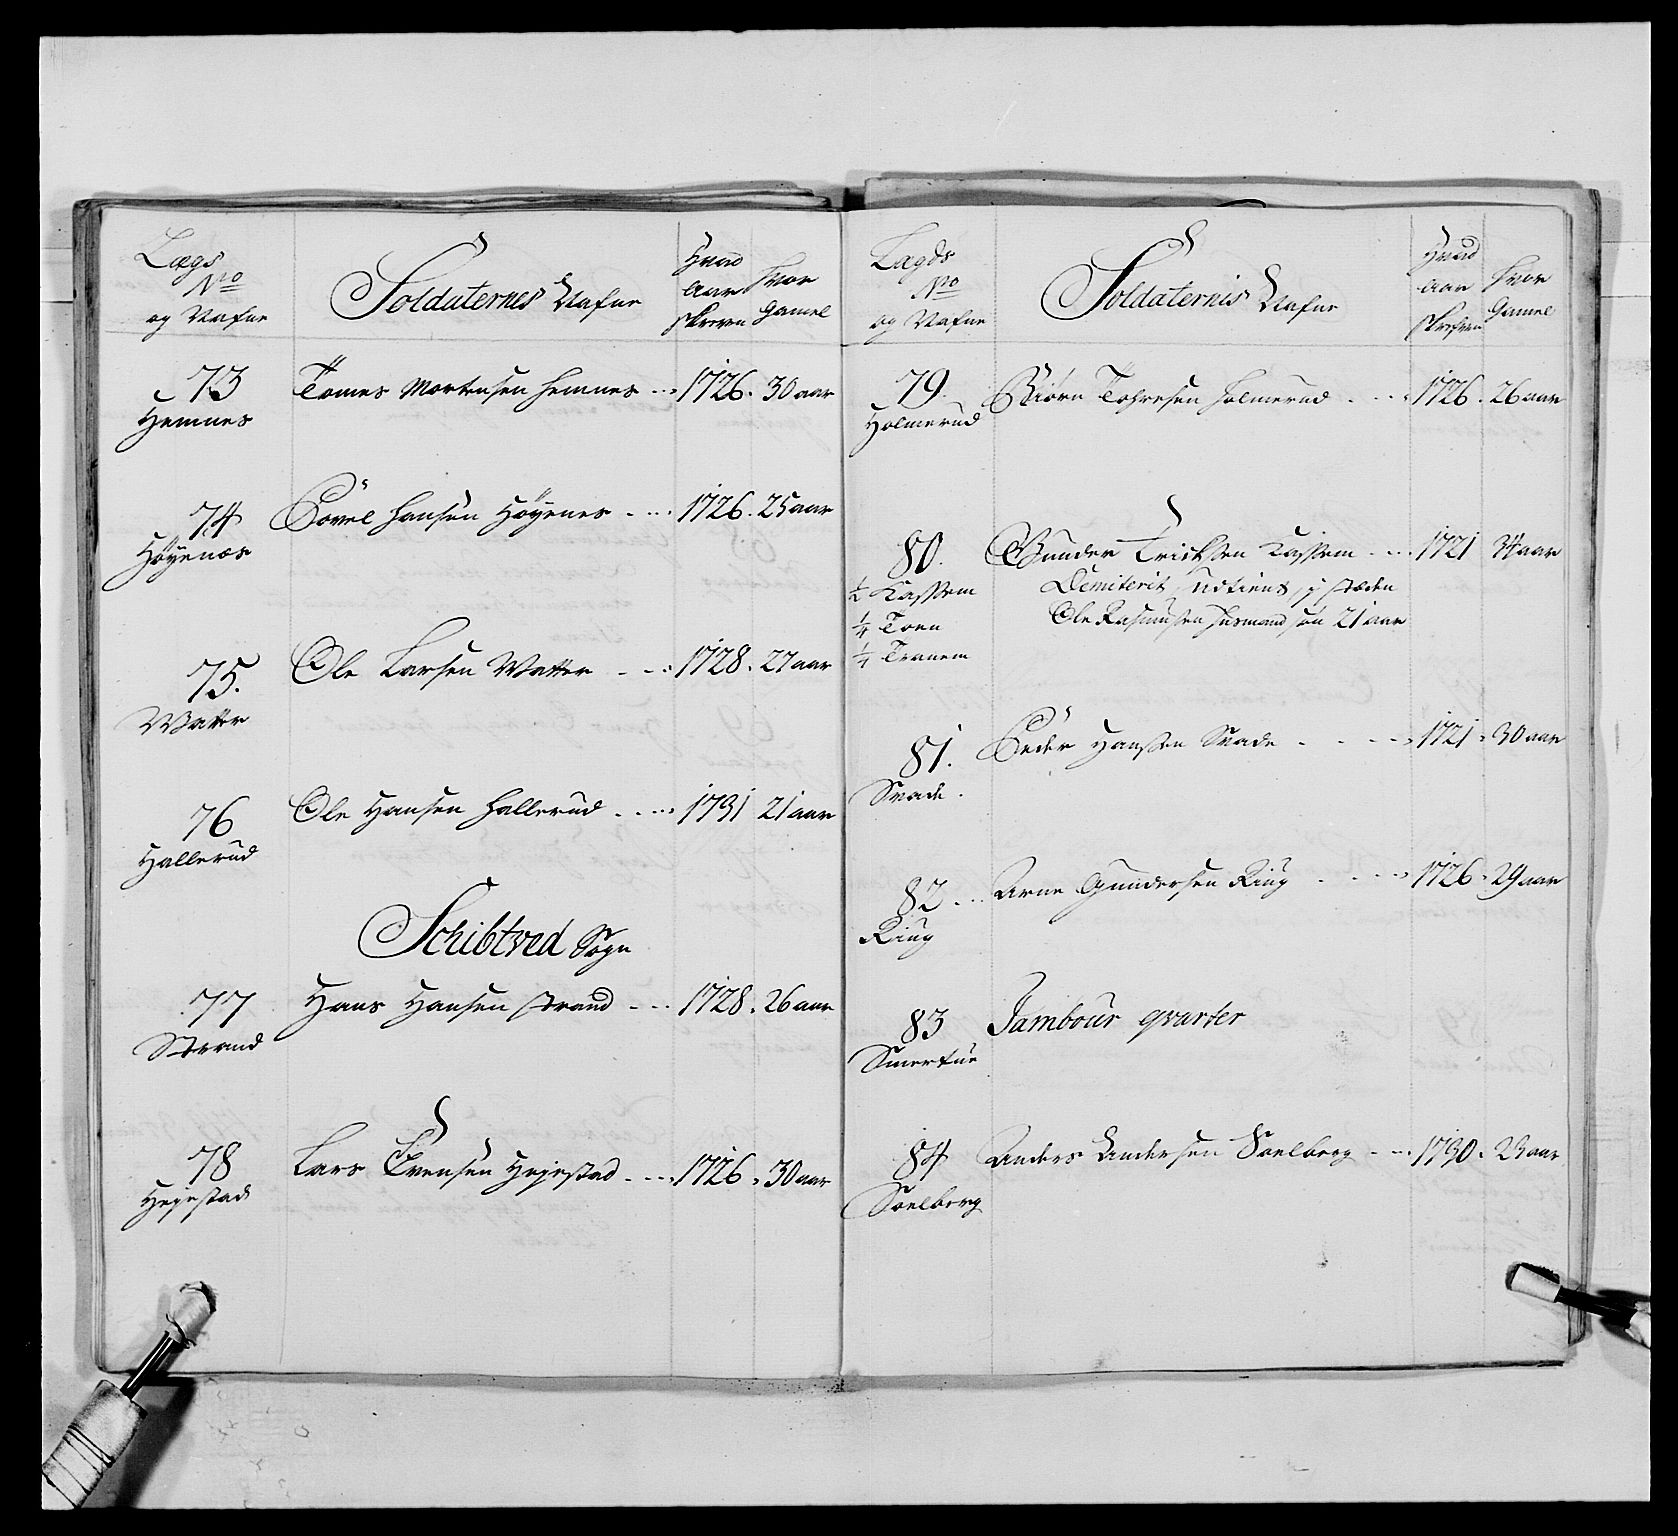 Lægs
No
og Nafne
Soldaternes Nafne
Hvad
Aar
skreven
hvor
Gamel
73
Hemnes
Tomes Mortensen Hemnes 1726. 30 aar
74
Höyenæs
Povel Hansen Höyenes 1726. 25 aar
75.
Watter
Ole Larsen Watter 1728. 27 aar
76
Hallerud
Ole Hansen Hallerud 1731 21 aar
Schibtved Sogn
77
Strand
Hans Hansen Strand 1728. 26 aar
78
Hejestad
Lars Evensen Hejestad 1726. 30 aar
Lægds
No
og Nafne
Soldaternis Nafne
Hvad
aar
skrefven
hvor
Gamel
79.
Holmerud
Biörn Tohresen Holmerud 1726. 26 aar
80.
1/2 Kassem
1/4 Toen
1/4 Tranem
Gunder Erichsen Kassem 1721 34 aar
Demiterit, udtienst, i stæden
Ole Rasmusen husmand sön 21 aar
81.
Svade.
Peder Hansen Svade 1721. 30 aar
82
Ring
Arne Gundersen Ring 1726. 29 aar
83
Smertue
Tambour qvarter
84
Soelberg
Anders Andersen Soelberg 1730. 23 aar